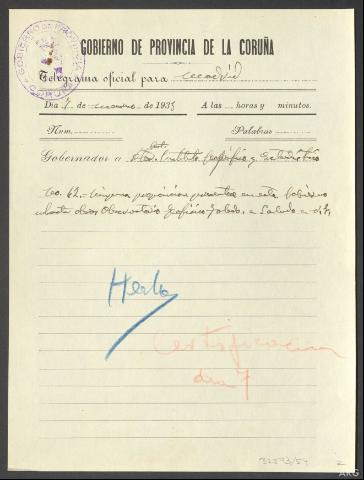 GOBIERNO DE PROVINCIA DE LA CORUÑA
Telegrama oficial para Madrid
Día 7 de enero de 1935 A las horas y minutos.
Núm. Palabras
Gobernador a Instituto Geográfico y Estadístico
No. 62.- Ninguna proposición presentada en este Gobierno
subasta obras Observatorio Geofísico Toledo, Saludo a
Hecho
Certificación
día 7
32893/54
2
AKG